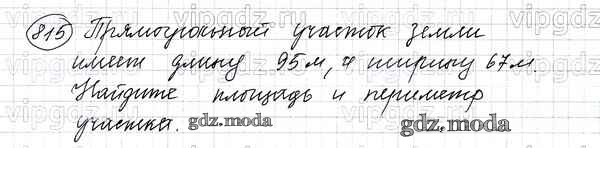 815 Прямоугольный участок земли
имеет длину 95 м, и ширину 67 м.
Найдите площадь и периметр
участка.
gdz.moda
gdz.moda